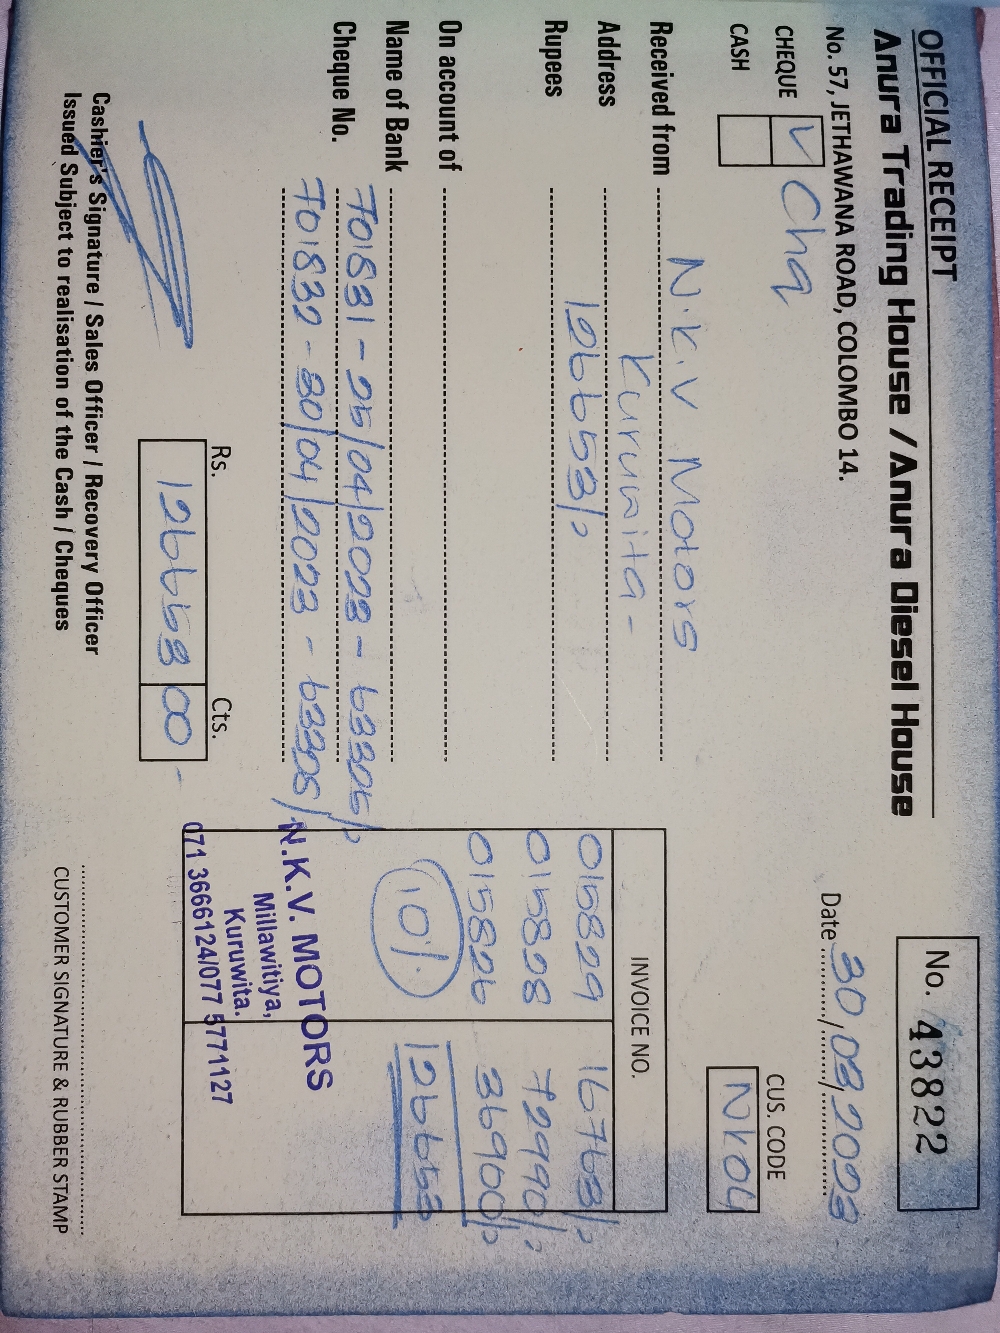 OFFICIAL RECEIPT
Anura Trading House / Anura Diesel House
No. 57, JETHAWANA ROAD, COLOMBO 14.
No. 43822
Date 30/03/2023
CHEQUE V Chq
CASH
CUS. CODE
NK04
Received from N.K.V Motors
Address Kuruwita -
Rupees 126658/=
On account of
Name of Bank 701831 - 25/04/2023 - 63305/=
Cheque No. 701832 - 30/04/2023 - 63305/
INVOICE NO.
015829 16768/=
015828 72990/=
015826 36900/=
10% 126658
Rs. Cts.
126658 00 -
N.K.V. MOTORS
Millawitiya,
Kuruwita.
071 3666124/077 5771127
Cashier's Signature / Sales Officer / Recovery Officer
Issued Subject to realisation of the Cash / Cheques
CUSTOMER SIGNATURE & RUBBER STAMP